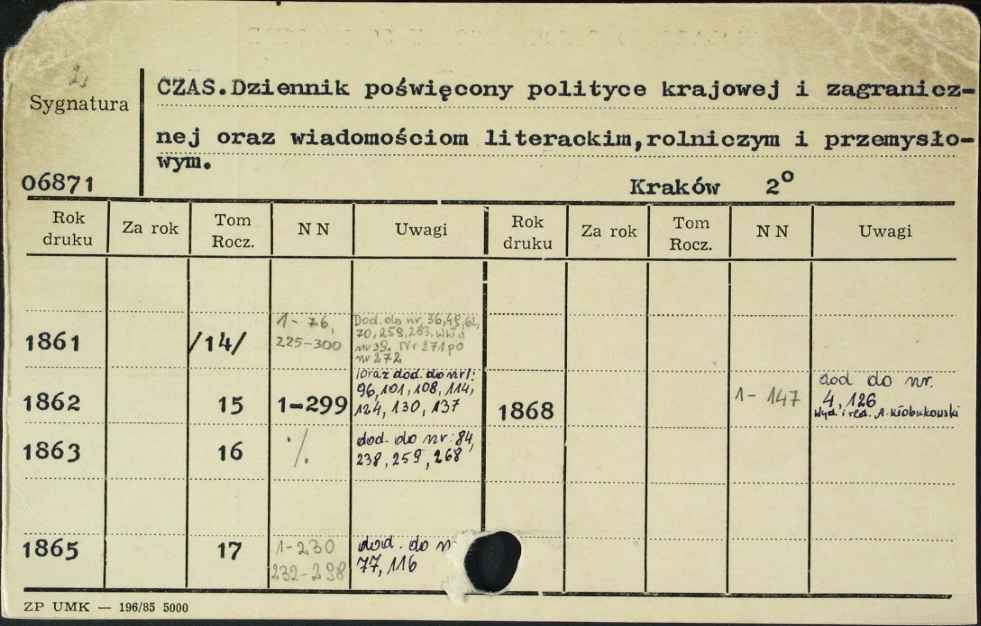 2,
Sygnatura
CZAS.Dziennik poświęcony polityce krajowej i zagranicz-
nej oraz wiadomościom literackim,rolniczym i przemysło-
wym.
06871
Kraków 2°
Rok druku Za rok Tom Rocz. N N Uwagi Rok druku Za rok Tom Rocz. N N Uwagi
1861 /14/ 1-76, 225-300
Dod. do nr. 36,49,62,
70,258,283.
nr 29. Nr 271 po
nr 272
1862 15 1-299
(oraz dod. do nr1:
96,101,108,114,
124,130,137
1868 1-147
dod do nr.
4,126
Wyd. i red. A. Kłobukowski
1863 16 ·/.
dod. do nr: 84,
238,259,268
1865 17 1-230 232-298
dod. do n
77,116
ZP UMK — 196/85 5000